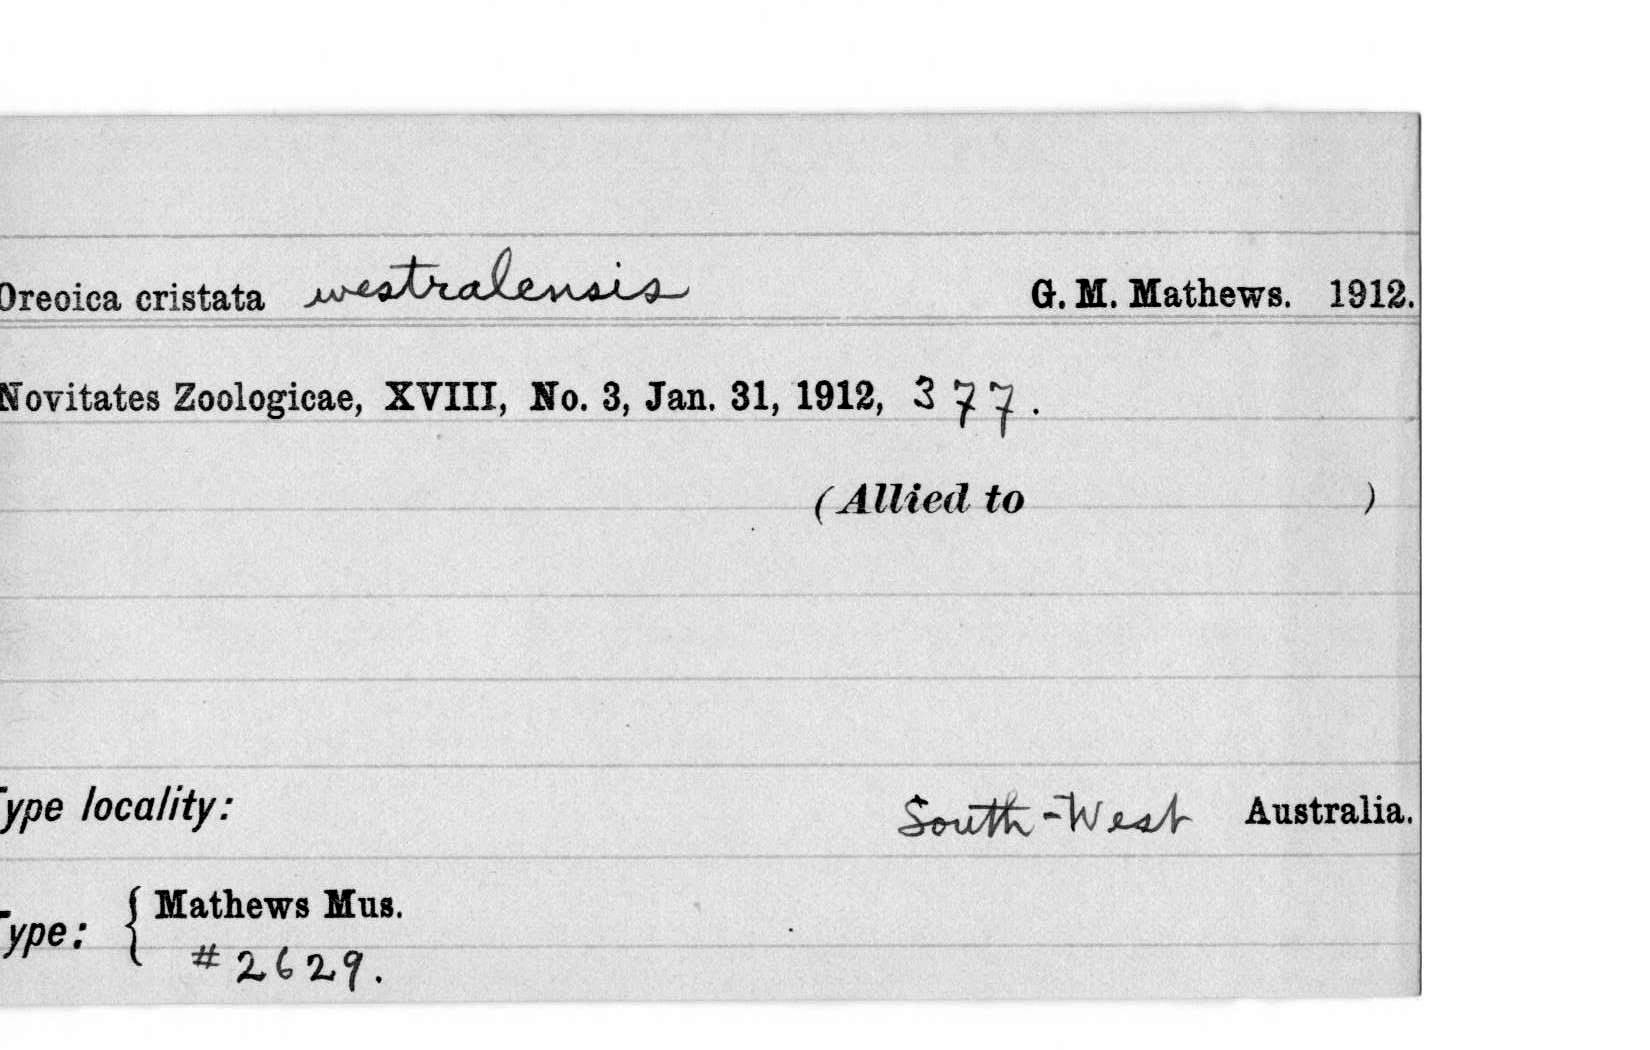 Oreoica cristata westralensis G. M. Mathews. 1912.
Novitates Zoologicae, XVIII, No. 3, Jan. 31, 1912, 377.
(Allied to )
Type locality: South-West Australia.
Type: { Mathews Mus.
#2629.